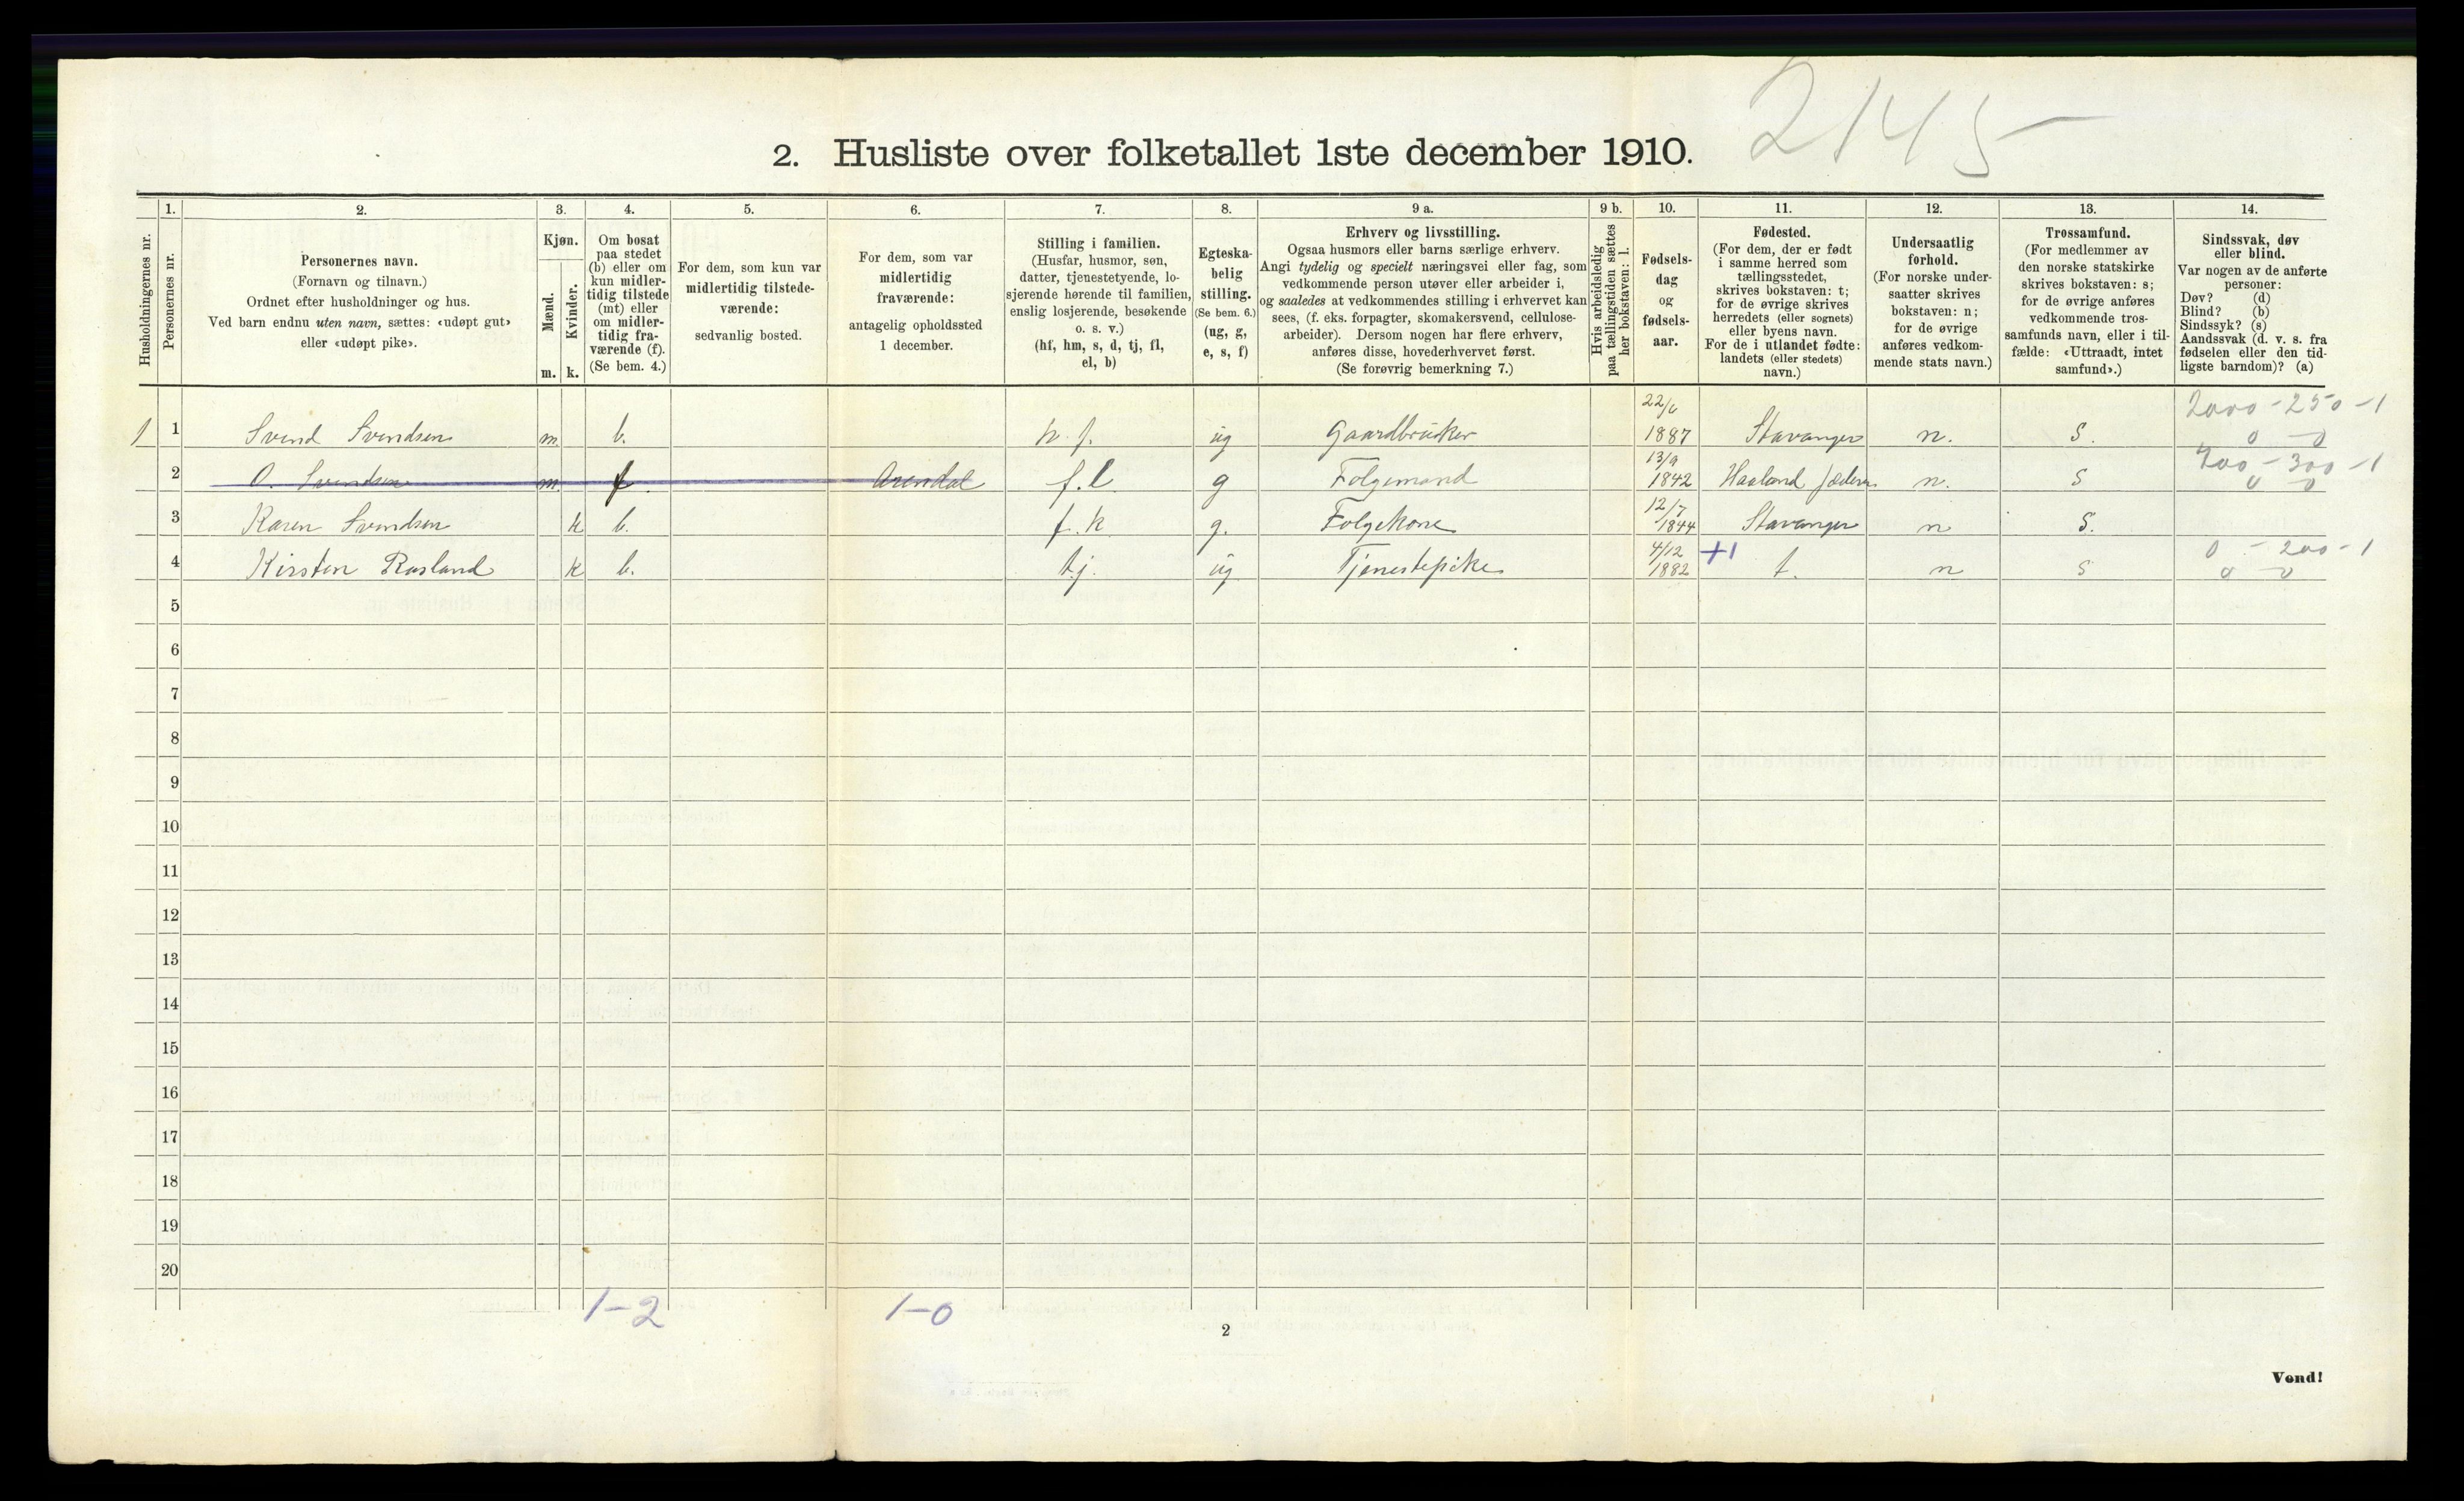 2145
2. Husliste over folketallet 1ste december 1910.
Husholdningernes nr.
1.
Personernes nr.
2.
Personernes navn.
(Fornavn og tilnavn.)
Ordnet efter husholdninger og hus.
Ved barn endnu uten navn, sættes: «udøpt gut»
eller «udøpt pike».
3.
Kjøn.
Mænd.
Kvinder.
m. k.
4.
Om bosat
paa stedet
(b) eller om
kun midler-
tidig tilstede
(mt) eller
om midler-
tidig fra-
værende (f).
(Se bem. 4.)
5.
For dem, som kun var
midlertidig tilstede-
værende:
sedvanlig bosted.
6.
For dem, som var
midlertidig
fraværende:
antagelig opholdssted
1 december.
7.
Stilling i familien.
(Husfar, husmor, søn,
datter, tjenestetyende, lo-
sjerende hørende til familien,
enslig losjerende, besøkende
o. s. v.)
(hf, hm, s, d, tj, fl,
el, b)
8.
Egteska-
belig
stilling.
(Se bem. 6.)
(ug, g,
e, s, f)
9 a.
Erhverv og livsstilling.
Ogsaa husmors eller barns særlige erhverv.
Angi tydelig og specielt næringsvei eller fag, som
vedkommende person utøver eller arbeider i,
og saaledes at vedkommendes stilling i erhvervet kan
sees, (f. eks. forpagter, skomakersvend, cellulose-
arbeider). Dersom nogen har flere erhverv,
anføres disse, hovederhvervet først.
(Se forøvrig bemerkning 7.)
9 b.
Hvis arbeidsledig
paa tællingstiden sættes
her bokstaven: l.
10.
Fødsels-
dag
og
fødsels-
aar.
11.
Fødested.
(For dem, der er født
i samme herred som
tællingsstedet,
skrives bokstaven: t;
for de øvrige skrives
herredets (eller sognets)
eller byens navn.
For de i utlandet fødte:
landets (eller stedets)
navn.)
12.
Undersaatlig
forhold.
(For norske under-
saatter skrives
bokstaven: n;
for de øvrige
anføres vedkom-
mende stats navn.)
13.
Trossamfund.
(For medlemmer av
den norske statskirke
skrives bokstaven: s;
for de øvrige anføres
vedkommende tros-
samfunds navn, eller i til-
fælde: «Uttraadt, intet
samfund».)
14.
Sindssvak, døv
eller blind.
Var nogen av de anførte
personer:
Døv? (d)
Blind? (b)
Sindssyk? (s)
Aandssvak (d. v. s. fra
fødselen eller den tid-
ligste barndom)? (a)
1 1 Svend Svendsen m. b. h.f. ug Gaardbruker 22/6 1887 Stavanger n. S. 2000-250-1 0-0
2 O. Svendsen m. f Arendal f.l g Folgemand 13/9 1842 Haaland Jæderen n. S 400-300-1 0-0
3 Karen Svendsen k b. f.k g. Folgekone 12/7 1844 Stavanger n S.
4 Kirsten Rosland k b. tj. ug Tjenestepike 4/12 1882 +1 t. n S 0-200-1 0-0
5
6
7
8
9
10
11
12
13
14
15
16
17
18
19
20
1-2 1-0
2
Vend!